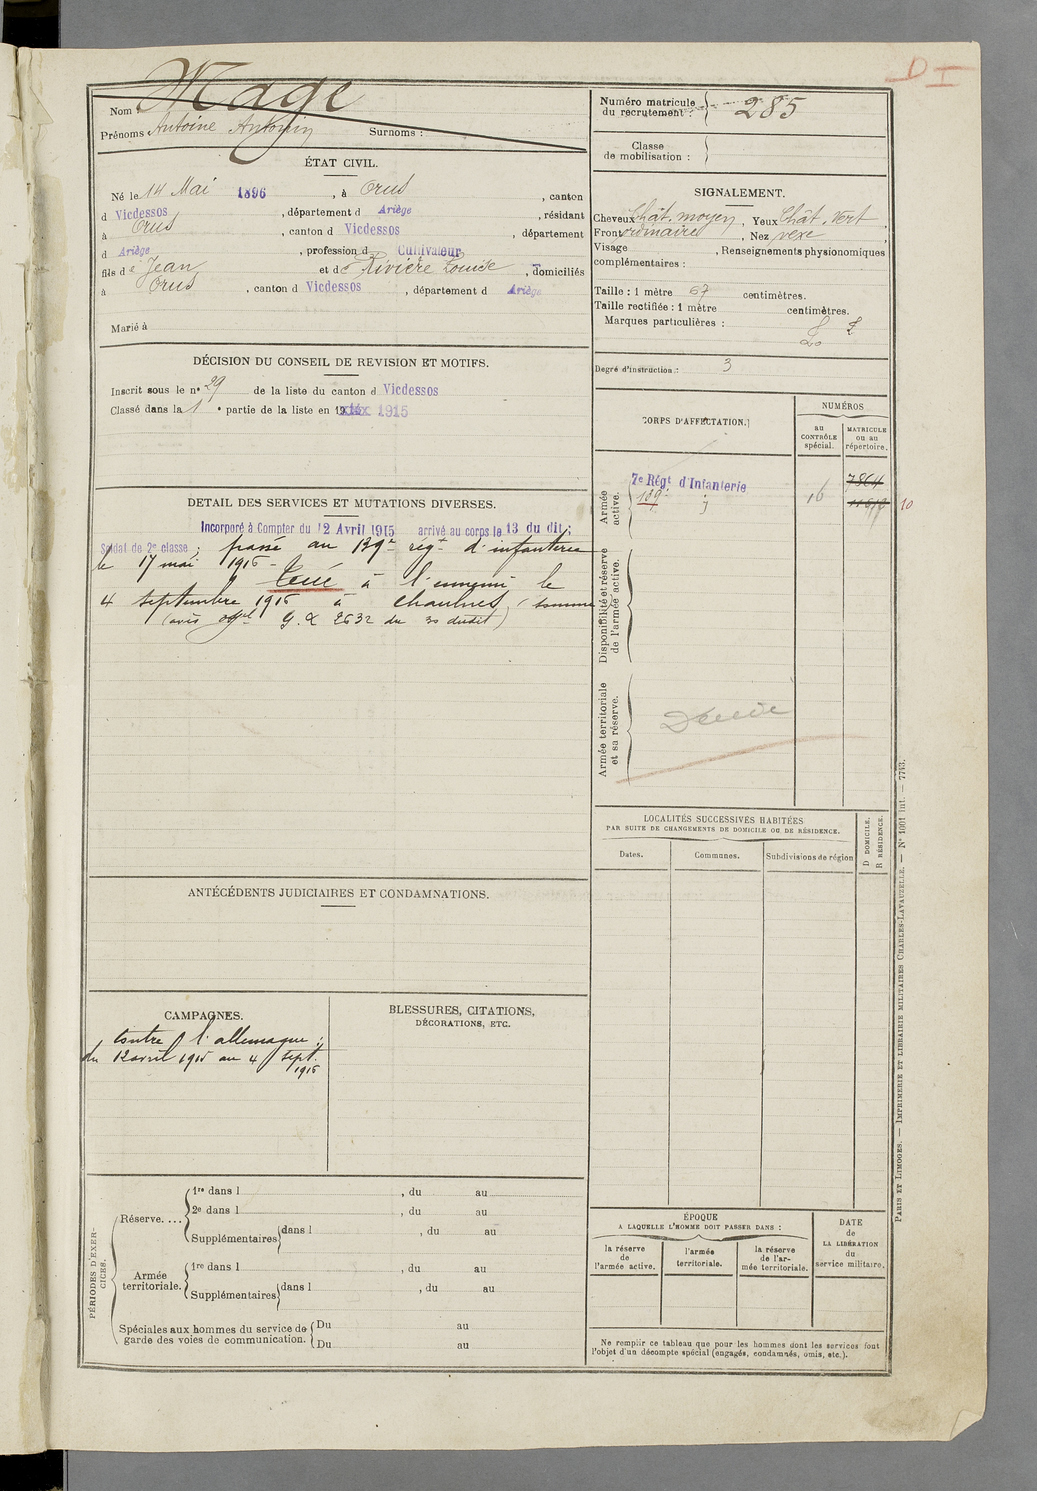 D I
Nom : Mage
Prénoms Antoine Antonin Surnoms :
ÉTAT CIVIL.
Né le 14 Mai 1896, à Orus, canton
d Vicdessos, département d Ariège, résidant
à Orus, canton d Vicdessos, département
d Ariège, profession d Cultivateur
fils de Jean et de Rivière Louise, domiciliés
à Orus, canton d Vicdessos, département d Ariège
Marié à
DÉCISION DU CONSEIL DE REVISION ET MOTIFS.
Inscrit sous le nº 29 de la liste du canton d Vicdessos
Classé dans la 1 e partie de la liste en 1915
DÉTAIL DES SERVICES ET MUTATIONS DIVERSES.
Incorporé à Compter du 12 Avril 1915 arrivé au corps le 13 du dit ;
Soldat de 2e classe ; passé au 139e régt d'infanterie
le 17 mai 1916 -
Tué à l'ennemi le
4 septembre 1916 à Chaulnes, (Somme
(avis offel G.X 2632 du 30 dudit)
ANTÉCÉDENTS JUDICIAIRES ET CONDAMNATIONS.
CAMPAGNES.
Contre l'allemagne ;
du 12 avril 1915 au 4 Sept.
1916
BLESSURES, CITATIONS,
DÉCORATIONS, ETC.
PÉRIODES D'EXERCICES.
Réserve....
1re dans l , du au
2e dans l , du au
Supplémentaires dans l , du au
Armée territoriale.
1re dans l , du au
Supplémentaires dans l , du au
Spéciales aux hommes du service de garde des voies de communication.
Du au
Du au
Numéro matricule du recrutement : 285
Classe de mobilisation :
SIGNALEMENT.
Cheveux chât. moyen, Yeux Chât. vert
Front ordinaire, Nez vexe,
Visage , Renseignements physionomiques
complémentaires :
Taille : 1 mètre 67 centimètres.
Taille rectifiée : 1 mètre centimètres.
Marques particulières :
Degré d'instruction : 3
CORPS D'AFFECTATION.
NUMÉROS
au CONTRÔLE spécial.
MATRICULE ou au répertoire.
Armée active.
7e Régt d'Infanterie
139e
16
7864
10
Disponibilité et réserve de l'armée active.
Armée territoriale et sa réserve.
LOCALITÉS SUCCESSIVES HABITÉES
PAR SUITE DE CHANGEMENTS DE DOMICILE OU DE RÉSIDENCE.
Dates.
Communes.
Subdivisions de région
D DOMICILE.
R RÉSIDENCE.
ÉPOQUE
A LAQUELLE L'HOMME DOIT PASSER DANS :
la réserve de l'armée active.
l'armée territoriale.
la réserve de l'armée territoriale.
DATE de LA LIBÉRATION du service militaire.
Ne remplir ce tableau que pour les hommes dont les services font
l'objet d'un décompte spécial (engagés, condamnés, omis, etc.).
PARIS ET LIMOGES. — IMPRIMERIE ET LIBRAIRIE MILITAIRES CHARLES-LAVAUZELLE. — Nº 1001 int. — 7713.